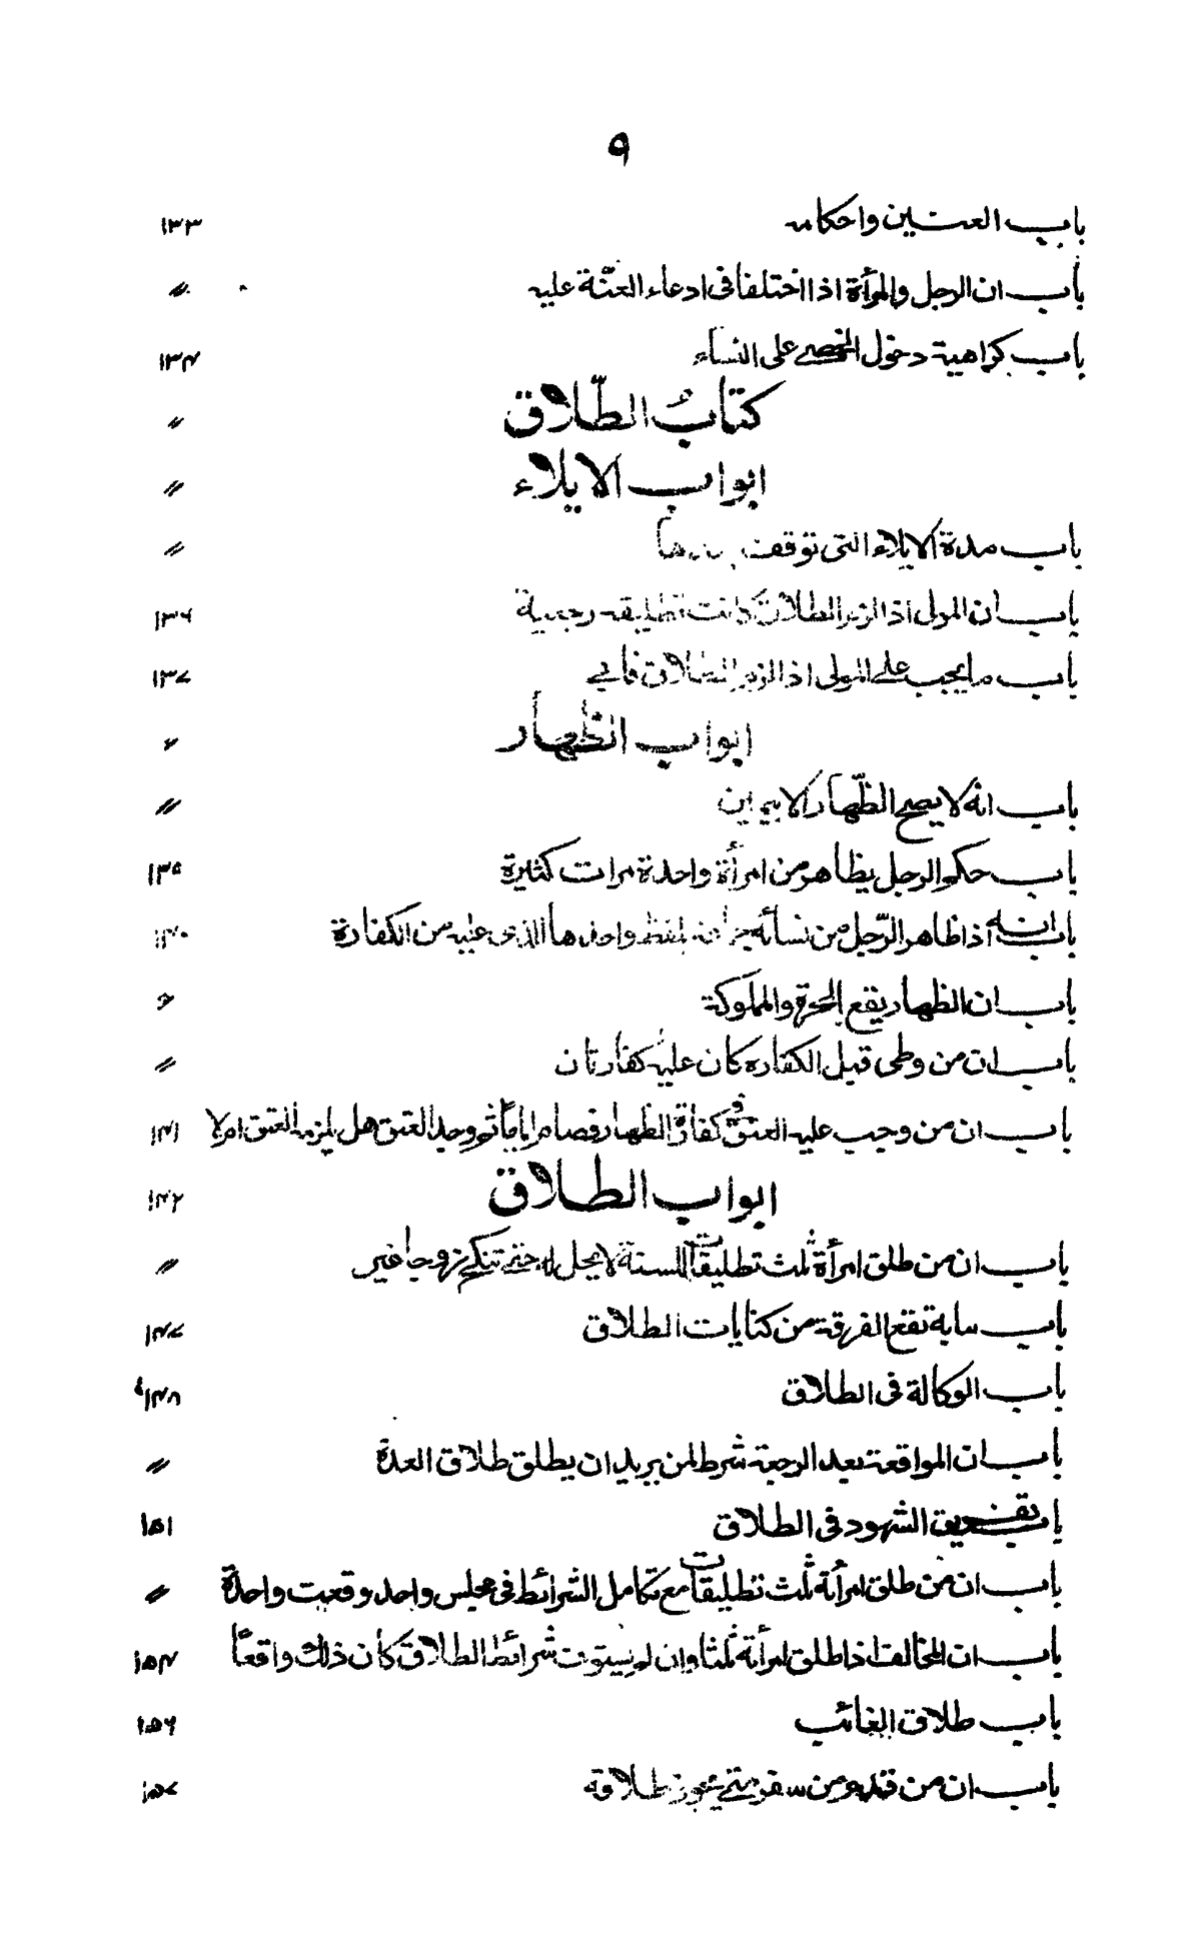 ٩
باب العنين واحكامه ١٣٣
باب ان الرجل والمرأة اذا اختلفا فى ادعاء العنّة عليه //
باب كراهية دخول الخصى على النساء ١٣٤
كتابُ الطّلاق //
ابواب الايلاء //
باب مدة الايلاء التى توقف بعدها //
باب ان المولى اذا الزم الطلاق كانت تطليقه رجعية ١٣٦
باب ما يجب على المولى اذا الزم الطلاق فابى ١٣٧
ابواب الظهار //
باب انه لا يصح الظّهار الا بيمين //
باب حكم الرجل يظاهر من امرأة واحدة مرات كثيرة ١٣٥
باب انه اذا ظاهر الرّجل من نسائه جماعة بلفظ واحد ما الذى عليه من الكفارة ١٤٠
باب ان الظهار يقع بالحرة والمملوكة //
باب ان من وطى قبل الكفاره كان عليه كفارتان //
باب ان من وجب عليه العتق فى كفارة الظهار فصام اياماً ثم وجد العتق هل يلزمه العتق ام لا ١٤١
ابواب الطلاق ١٤٢
باب ان من طلق امرأة ثلث تطليقات للسنة لا يحل له حتى تنكح زوجا غير //
باب ما به تقع الفرقة من كنايات الطلاق ١٤٧
باب الوكالة فى الطلاق ١٤٨
باب ان المواقعة بعد الرجعة شرط لمن يريد ان يطلق طلاق العدة //
باب تفريق الشهود فى الطلاق ١٥١
باب ان من طلق امرأة ثلث تطليقات مع تكامل الشرائط فى مجلس واحد وقعت واحدة //
باب ان المخالف اذا طلق امرأة ثلثا وان لم يستوف شرائط الطلاق كان ذلك واقعًا ١٥٤
باب طلاق الغائب ١٥٦
باب ان من قدم من سفر متى يجوز طلاقه ١٥٧